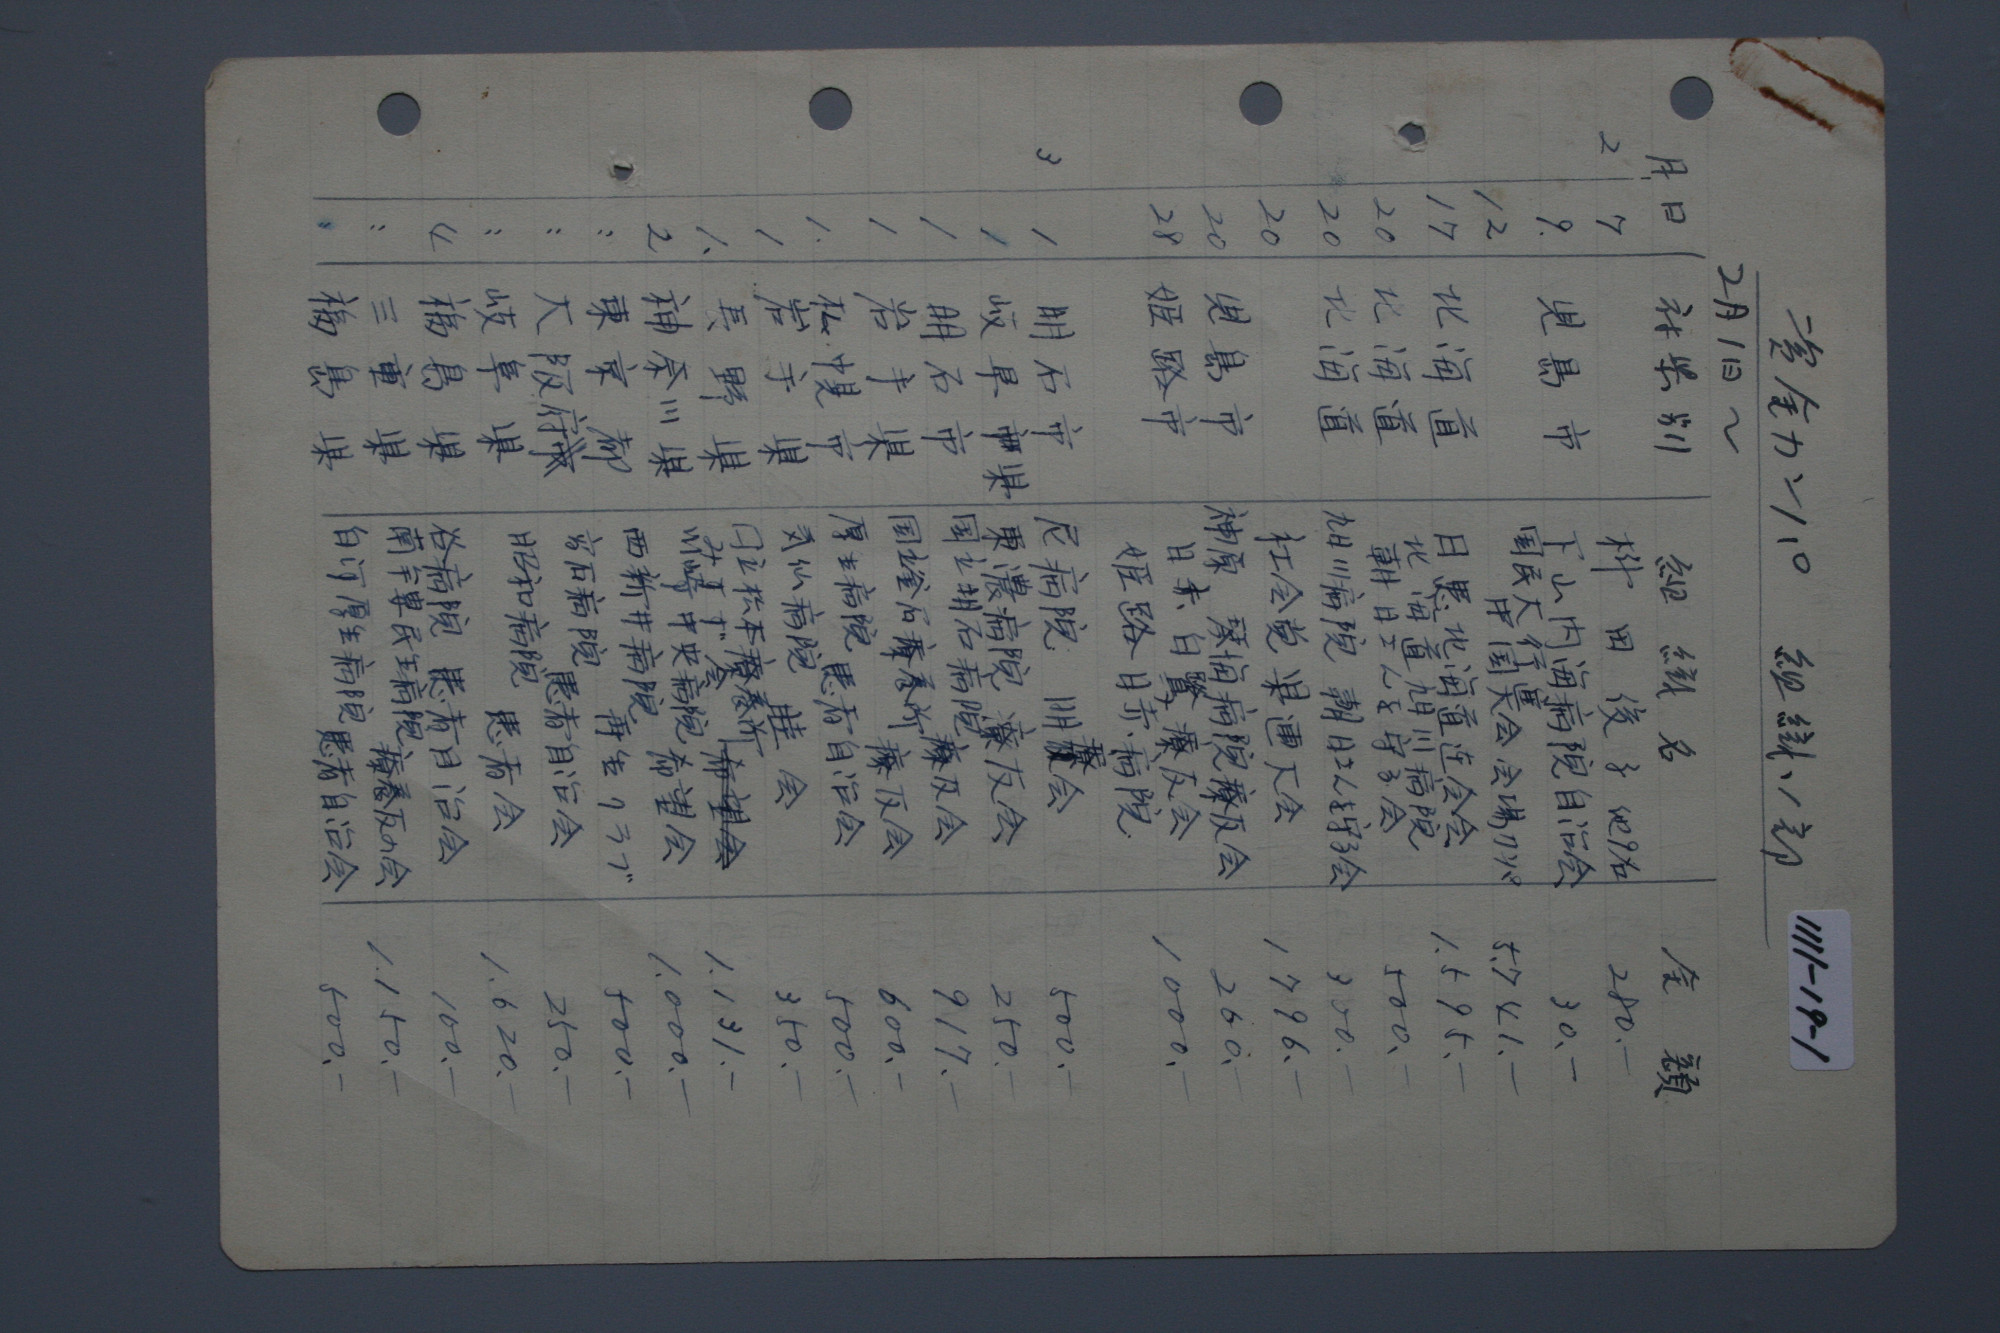 1111-19-1
資金カンパ 組織の部
2月1日〜
月 日 社県別 組織名 金額
2 7 科田後子他9名 280.-
9. 児島市 下山内海病院自治会 30.-
12 国民大行進中国大会会場カンパ 5.741.-
17 北海道 日患北海道連合会 1.595.-
20 北海道 北海道旭川病院朝日さんを守る会 500.-
20 北海道 旭川病院 朝日さんを守る会 300.-
20 社会党県連大会 1796.-
20 児島市 神原 琴海病院療友会 260.-
28 姫路市 日赤 白鷺療友会 姫路日赤病院 1000.-
3 1. 明石市 病院 会 500.-
1 岐阜県 東濃病院 療友会 250.-
1 明石市 国立明石病院 療友会 917.-
1 岩手県 国立釜石療養所 療友会 600.-
1. 市 厚生病院 患者自治会 500.-
1 岩手県 気仙病院 会 350.-
1. 長野県 国立松本療養所 希望会 1.131.-
2 神奈川県 川崎中央病院 希望会 1.000.-
〃 東京都 西新井病院 再生クラブ 500.-
〃 大阪府 病院 患者自治会 250.-
〃 岐阜県 昭和病院 患者会 1.620.-
4 福島県 病院 患者自治会 100.-
〃 三重県 病院 療養友の会 1.150.-
〃 福島県 白河厚生病院 患者自治会 500.-